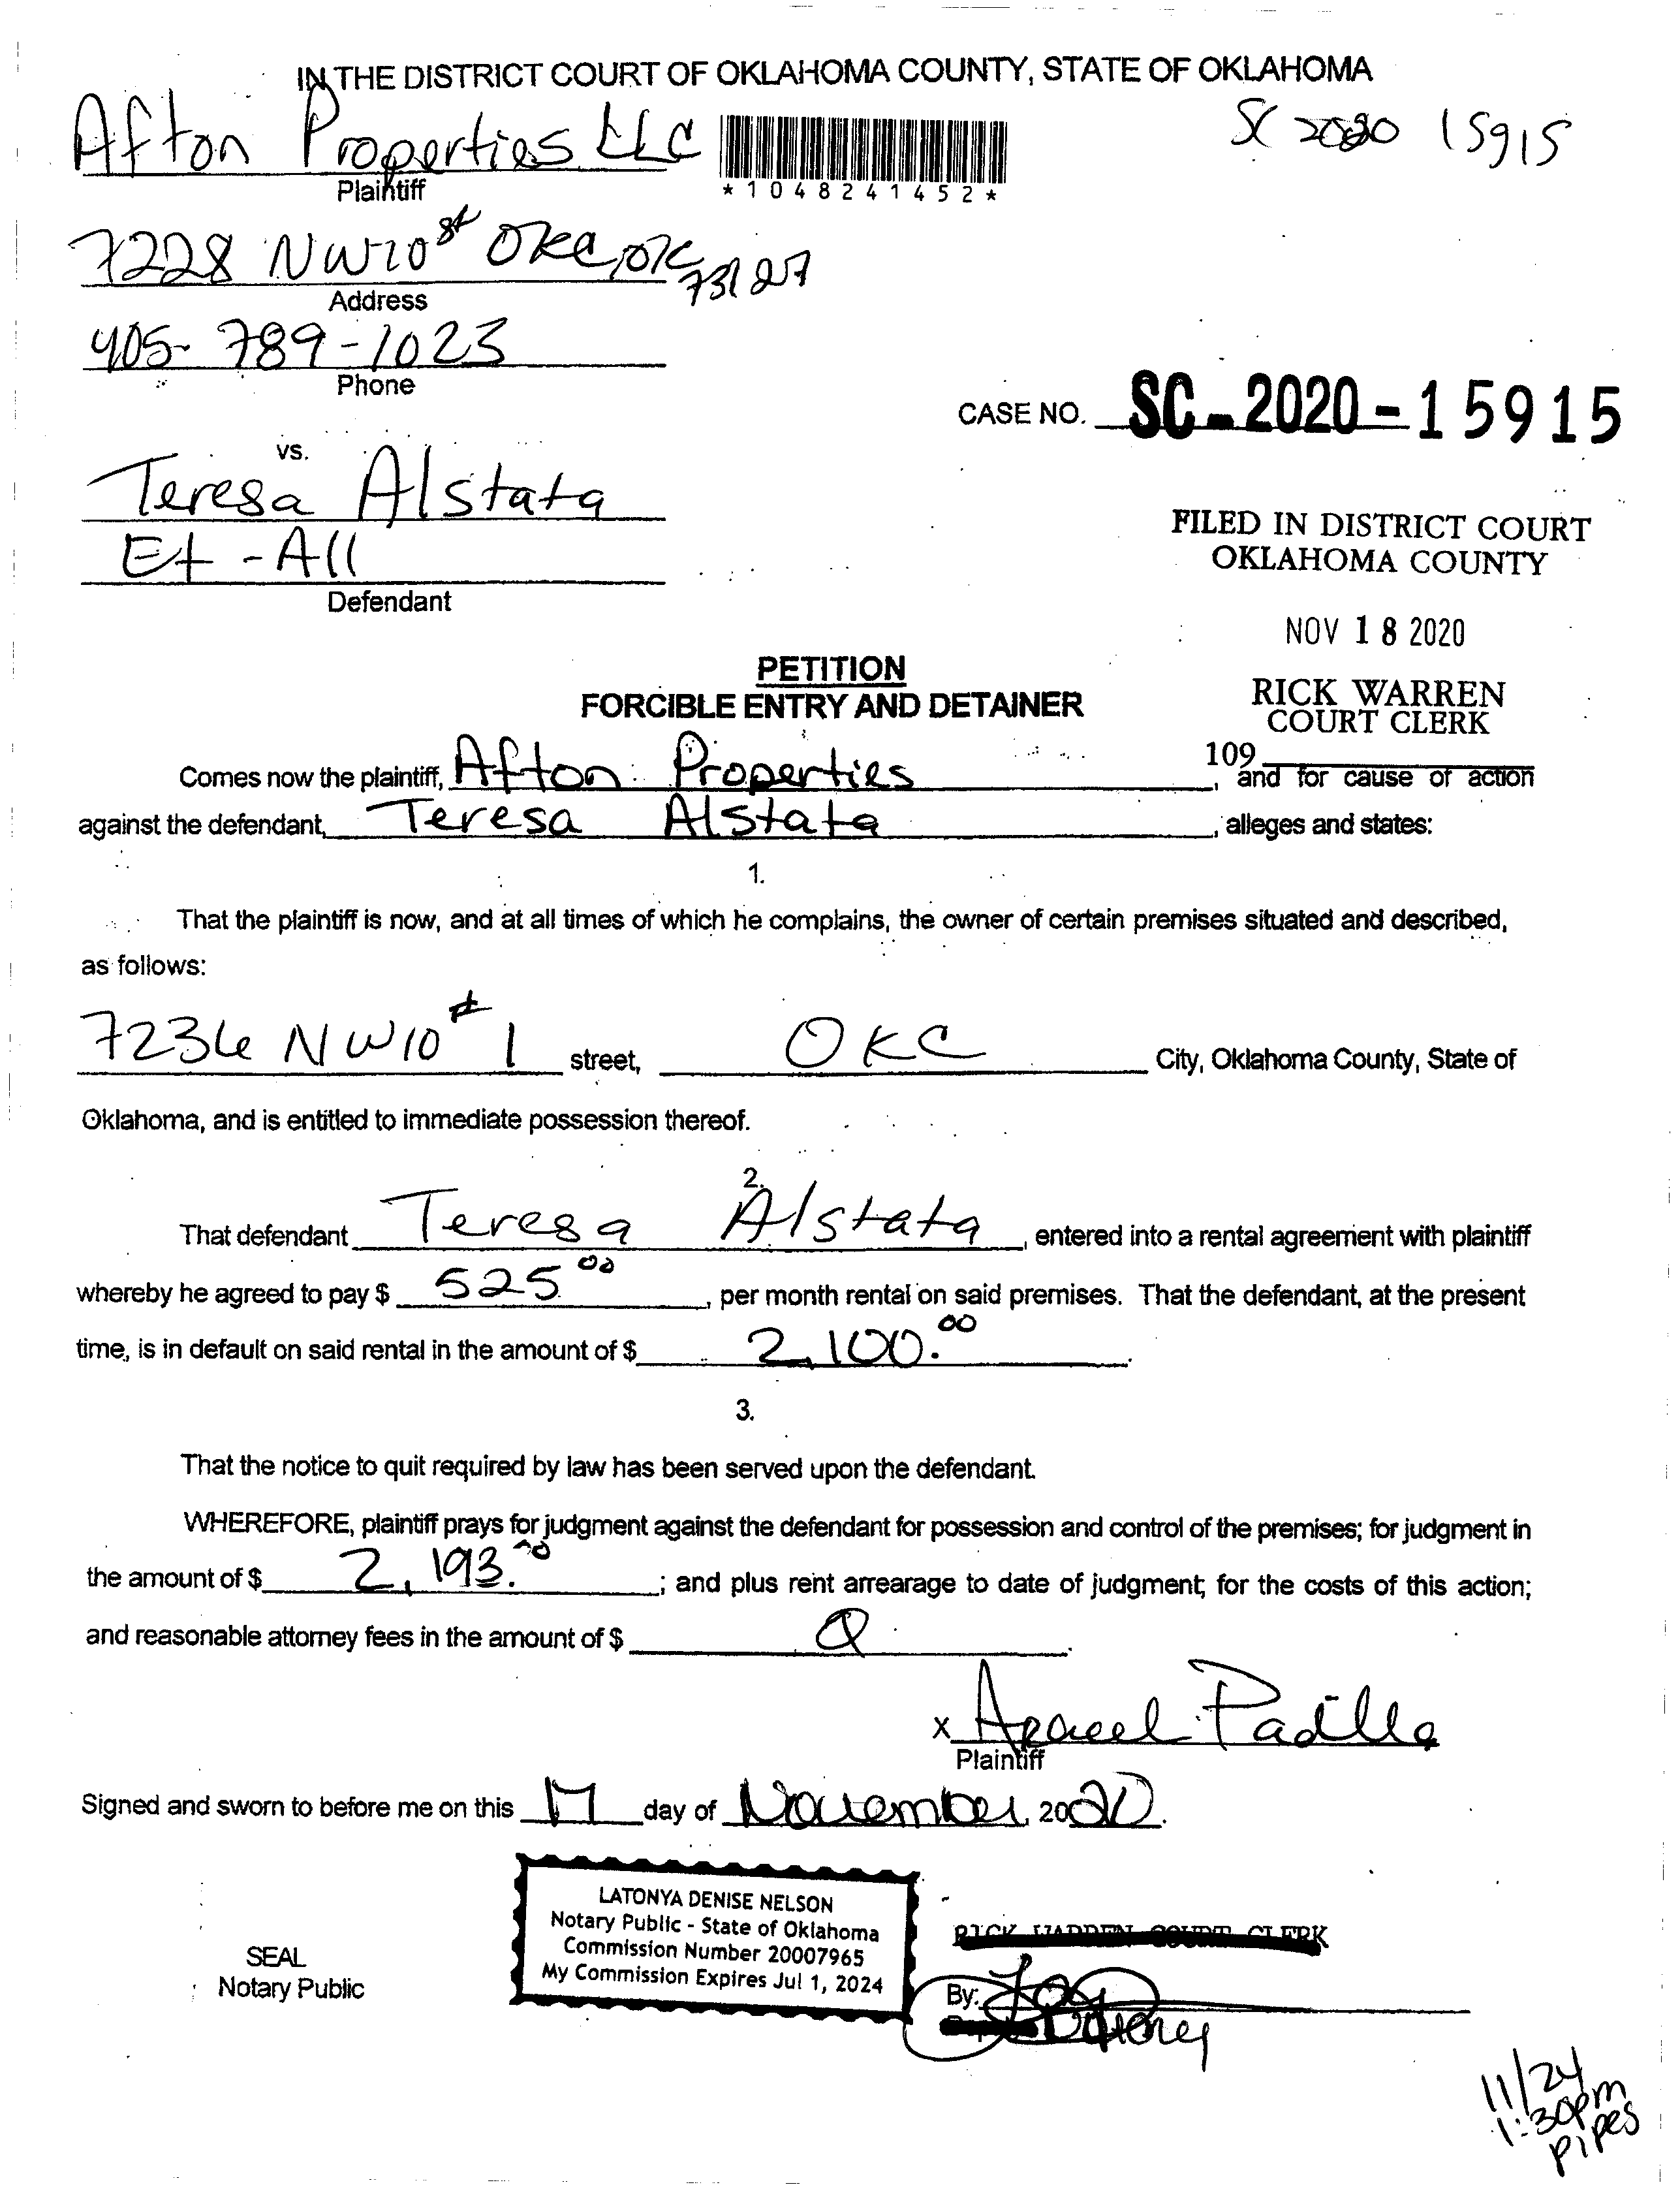 IN THE DISTRICT COURT OF OKLAHOMA COUNTY, STATE OF OKLAHOMA
SC 2020 15915
Afton Properties LLC
Plaintiff
*1048241452*
7228 NW 10 st OKC, OK 73127
Address
405-789-1023
Phone
CASE NO. SC-2020-15915
vs.
Teresa Alstata
Et-All
Defendant
FILED IN DISTRICT COURT
OKLAHOMA COUNTY
NOV 18 2020
RICK WARREN
COURT CLERK
109
PETITION
FORCIBLE ENTRY AND DETAINER
Comes now the plaintiff, Afton Properties, and for cause of action
against the defendant, Teresa Alstata, alleges and states:
1.
That the plaintiff is now, and at all times of which he complains, the owner of certain premises situated and described,
as follows:
7236 NW 10 # 1 street, OKC City, Oklahoma County, State of
Oklahoma, and is entitled to immediate possession thereof.
2.
That defendant Teresa Alstata, entered into a rental agreement with plaintiff
whereby he agreed to pay $ 525.00, per month rental on said premises. That the defendant, at the present
time, is in default on said rental in the amount of $ 2,100.00.
3.
That the notice to quit required by law has been served upon the defendant.
WHEREFORE, plaintiff prays for judgment against the defendant for possession and control of the premises; for judgment in
the amount of $ 2,193.00; and plus rent arrearage to date of judgment; for the costs of this action;
and reasonable attorney fees in the amount of $
x Padilla
Plaintiff
Signed and sworn to before me on this 17 day of November, 2020.
LATONYA DENISE NELSON
Notary Public - State of Oklahoma
Commission Number 20007965
My Commission Expires Jul 1, 2024
SEAL
Notary Public
RICK WARREN COURT CLERK
By:
11/24
1:30pm
Pipes